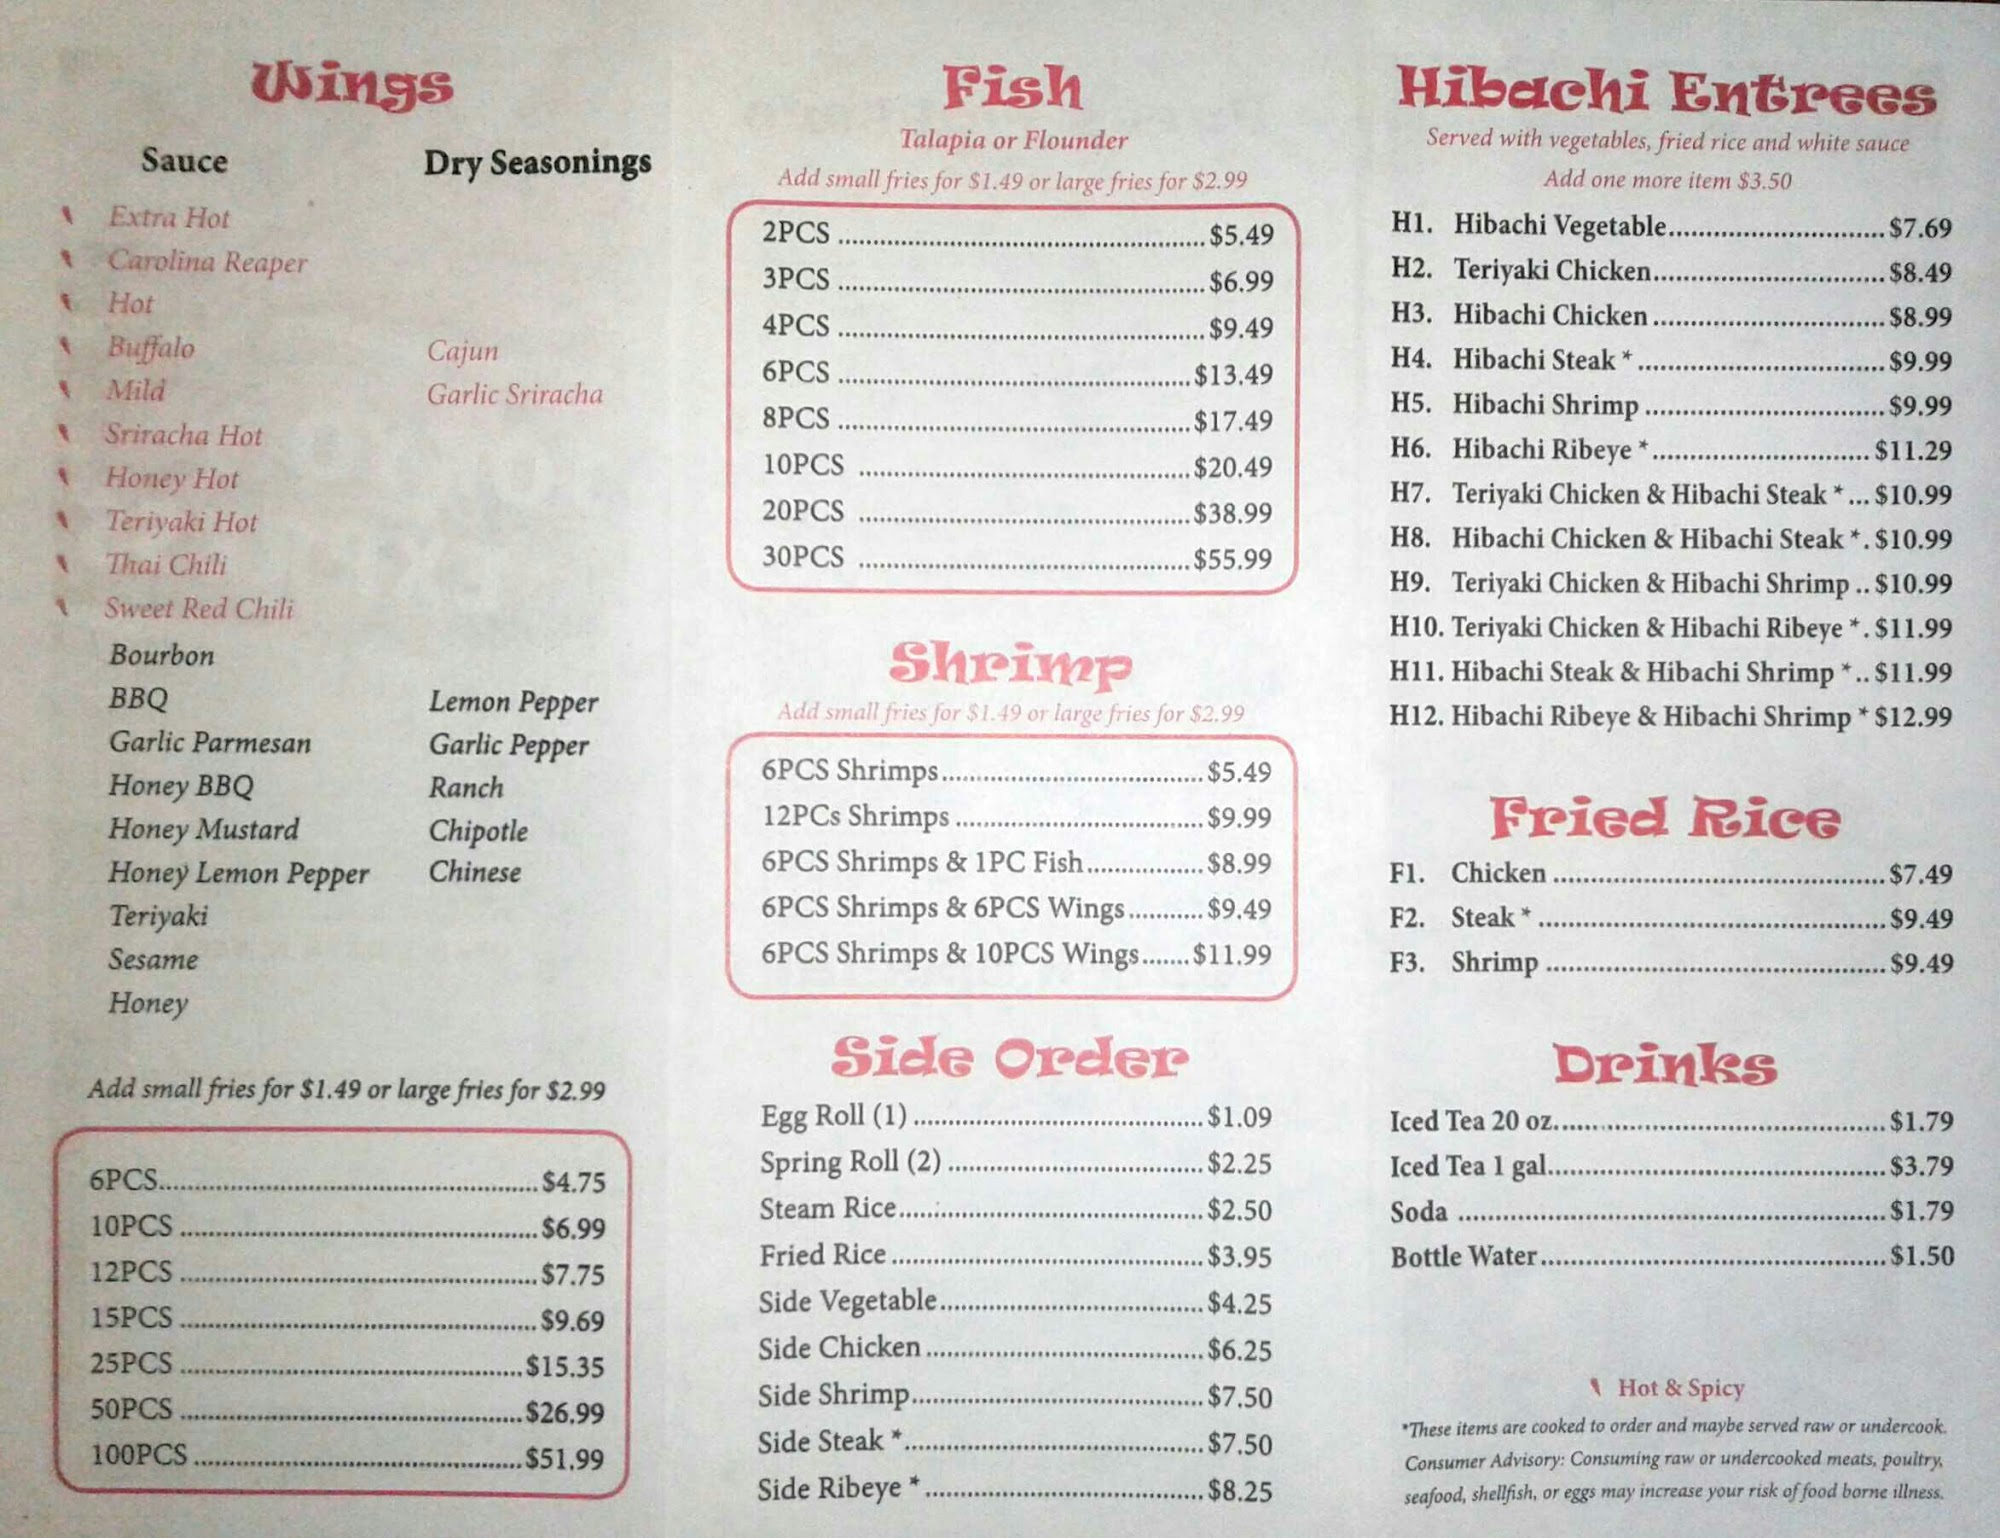 Wings
Sauce
Extra Hot
Carolina Reaper
Hot
Buffalo
Mild
Sriracha Hot
Honey Hot
Teriyaki Hot
Thai Chili
Sweet Red Chili
Bourbon
BBQ
Garlic Parmesan
Honey BBQ
Honey Mustard
Honey Lemon Pepper
Teriyaki
Sesame
Honey
Dry Seasonings
Cajun
Garlic Sriracha
Lemon Pepper
Garlic Pepper
Ranch
Chipotle
Chinese
Add small fries for $1.49 or large fries for $2.99
6PCS $4.75
10PCS $6.99
12PCS $7.75
15PCS $9.69
25PCS $15.35
50PCS $26.99
100PCS $51.99
Fish
Talapia or Flounder
Add small fries for $1.49 or large fries for $2.99
2PCS $5.49
3PCS $6.99
4PCS $9.49
6PCS $13.49
8PCS $17.49
10PCS $20.49
20PCS $38.99
30PCS $55.99
Shrimp
Add small fries for $1.49 or large fries for $2.99
6PCS Shrimps $5.49
12PCs Shrimps $9.99
6PCS Shrimps & 1PC Fish $8.99
6PCS Shrimps & 6PCS Wings $9.49
6PCS Shrimps & 10PCS Wings $11.99
Side Order
Egg Roll (1) $1.09
Spring Roll (2) $2.25
Steam Rice $2.50
Fried Rice $3.95
Side Vegetable $4.25
Side Chicken $6.25
Side Shrimp $7.50
Side Steak * $7.50
Side Ribeye * $8.25
Hibachi Entrees
Served with vegetables, fried rice and white sauce
Add one more item $3.50
H1. Hibachi Vegetable $7.69
H2. Teriyaki Chicken $8.49
H3. Hibachi Chicken $8.99
H4. Hibachi Steak * $9.99
H5. Hibachi Shrimp $9.99
H6. Hibachi Ribeye * $11.29
H7. Teriyaki Chicken & Hibachi Steak * $10.99
H8. Hibachi Chicken & Hibachi Steak * $10.99
H9. Teriyaki Chicken & Hibachi Shrimp $10.99
H10. Teriyaki Chicken & Hibachi Ribeye * $11.99
H11. Hibachi Steak & Hibachi Shrimp * $11.99
H12. Hibachi Ribeye & Hibachi Shrimp * $12.99
Fried Rice
F1. Chicken $7.49
F2. Steak * $9.49
F3. Shrimp $9.49
Drinks
Iced Tea 20 oz. $1.79
Iced Tea 1 gal. $3.79
Soda $1.79
Bottle Water $1.50
Hot & Spicy
*These items are cooked to order and maybe served raw or undercook.
Consumer Advisory: Consuming raw or undercooked meats, poultry,
seafood, shellfish, or eggs may increase your risk of food borne illness.